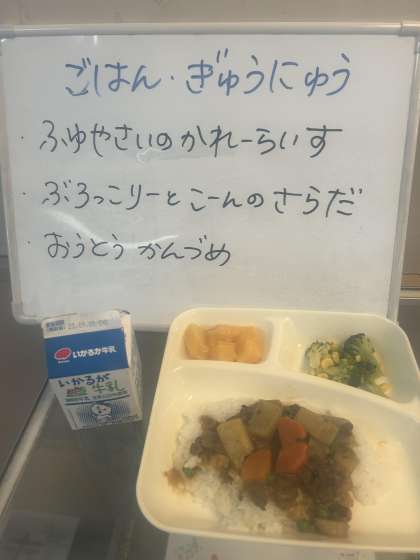 ごはん・ぎゅうにゅう
・ふゆやさいのかれーらいす
・ぶろっこりーとこーんのさらだ
・おうとうかんづめ
いかるが牛乳
いかるが
牛乳